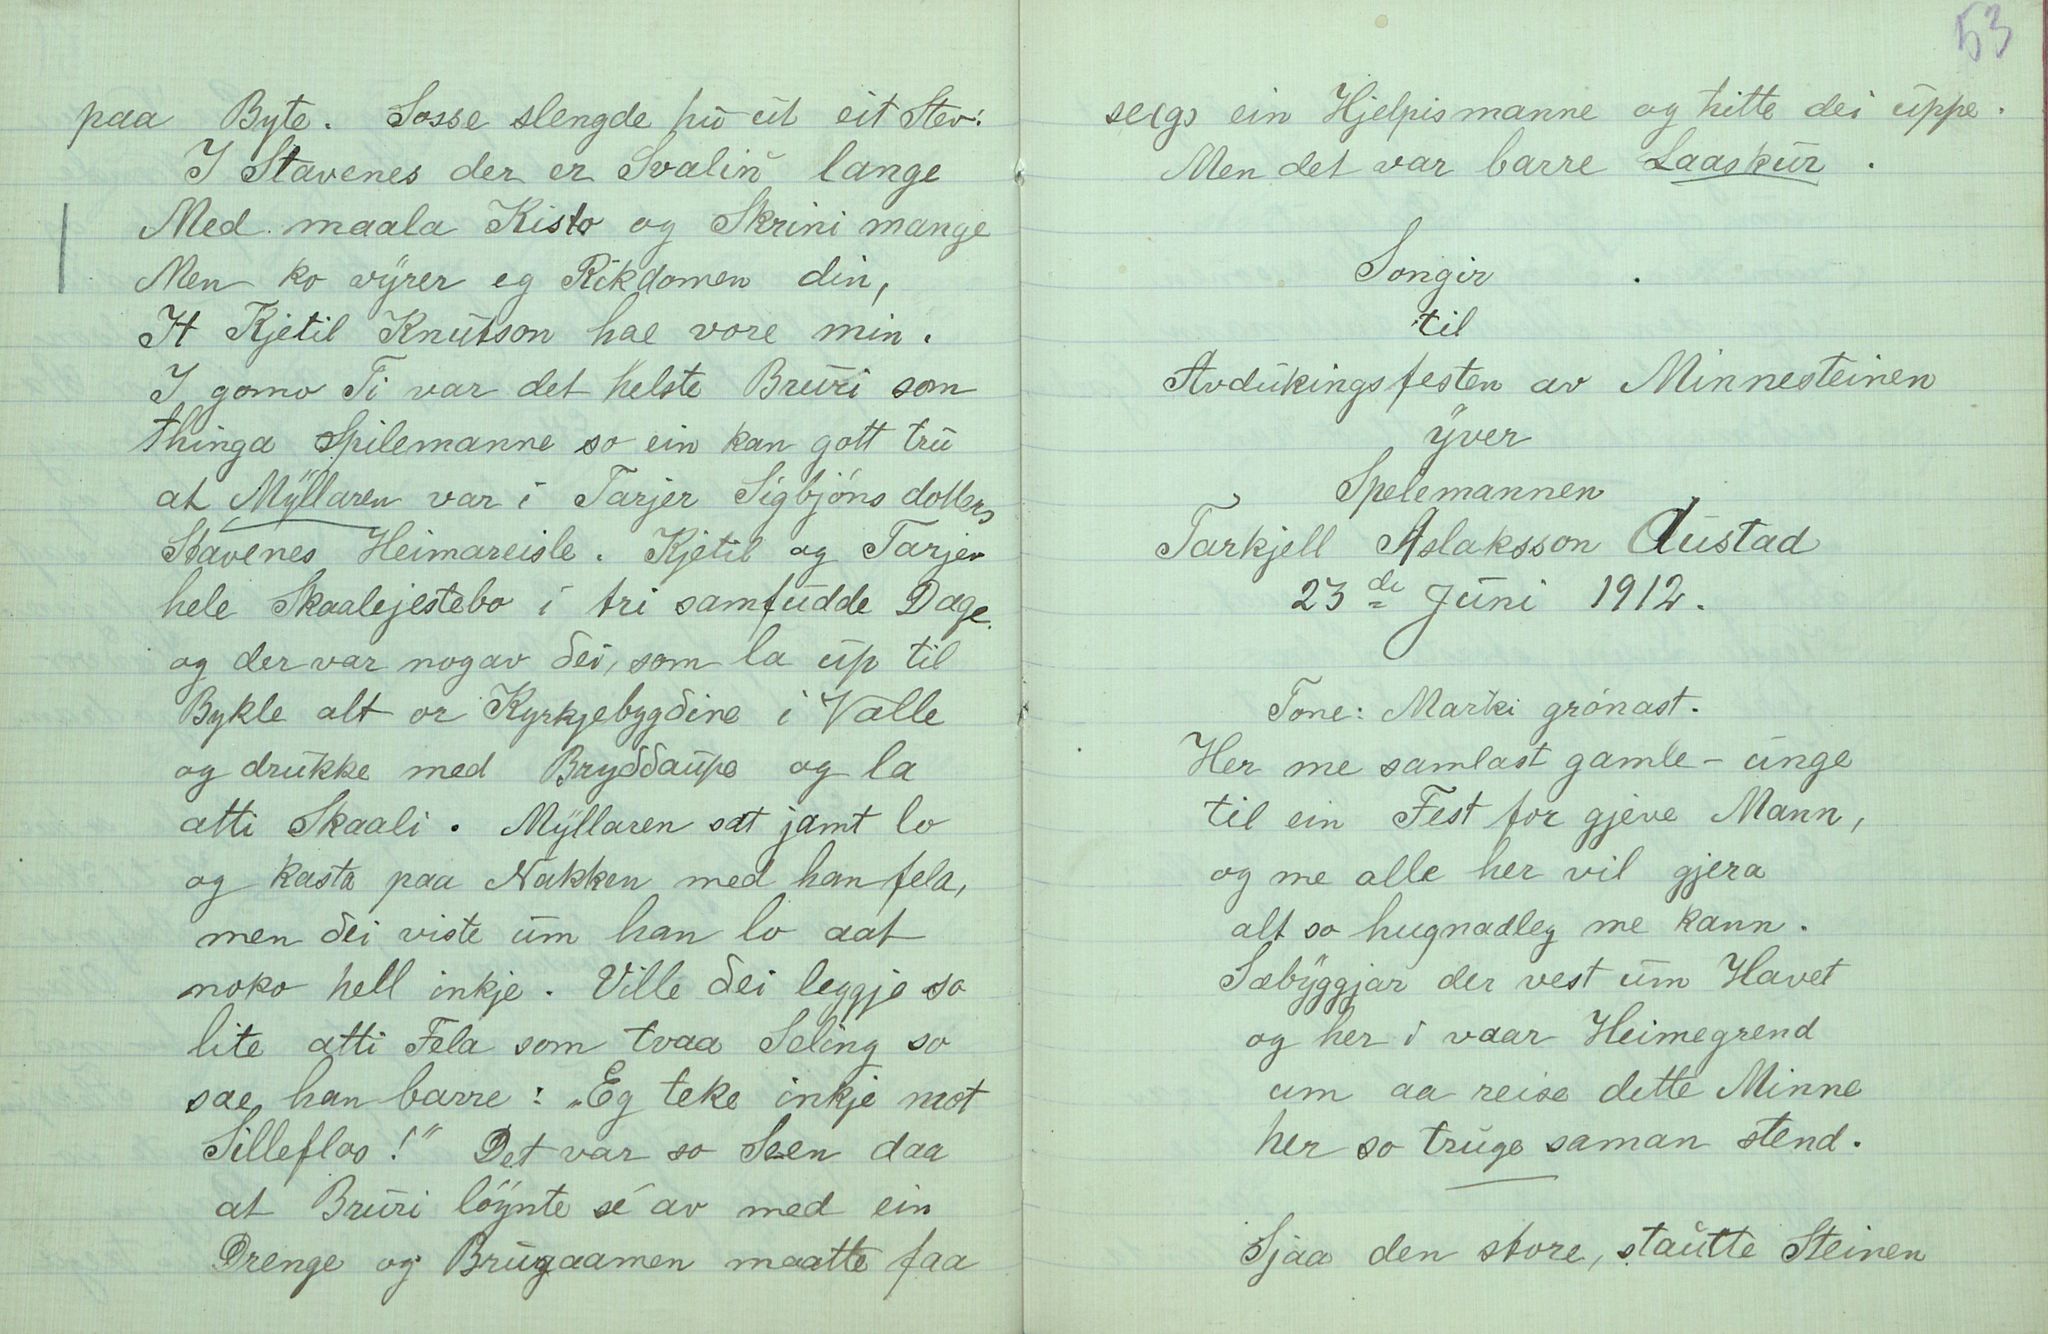 paa Byte. Sosse slengde hu ut eit Stev:
I Stavenes der er Svalin lange
Med maala Kisto og Skrini mange
Men ko vyrer eg Rikdomen din,
H Kjetil Knutson hae vore min.
I gomo Ti var det helste Bruri som
thinga Spilemanne so ein kan gott tru
at Myllaren var i Tarjer Sigbjóns dotters
Stavenes Heimareisle. Kjetil og Tarjer
hele Skaalejestebo i tri samfudde Dage
og der var nogav dei, som la up til
Bykle alt or Kyrkjebygdine i Valle
og drukke med Bryddaupe og la
atti Skaali. Myllaren sat jamt lo
og kasta paa Nakken med han fela,
men dei viste um han lo aat
noko hell inkje. Ville dei leggje so
lite atti Fela som tvaa Seling so
sae han barre: „Eg teke inkje mot
Silleflos!" Det var so Seen daa
at Bruri löynte sé av med ein
Drenge og Brugaamen maatte faa
53
se(g) ein Hjelpismanne og hitte dei uppe.
Men det var barre Laaskur.
Songir
til
Avdukingsfesten av Minnesteinen
yver
Spelemannen
Tarkjell Aslaksson Austad
23de Juni 1912.
Tone: Marki grónast.
Her me samlast gamle - unge
til ein Fest for gjeve Mann,
og me alle her vil gjera
alt so hugnadleg me kann.
Sæbyggjar der vest um Havet
og her i vaar Heimegrend
um aa reise dette Minne
her so truge saman stend.
Sjaa den store, stautte Steinen